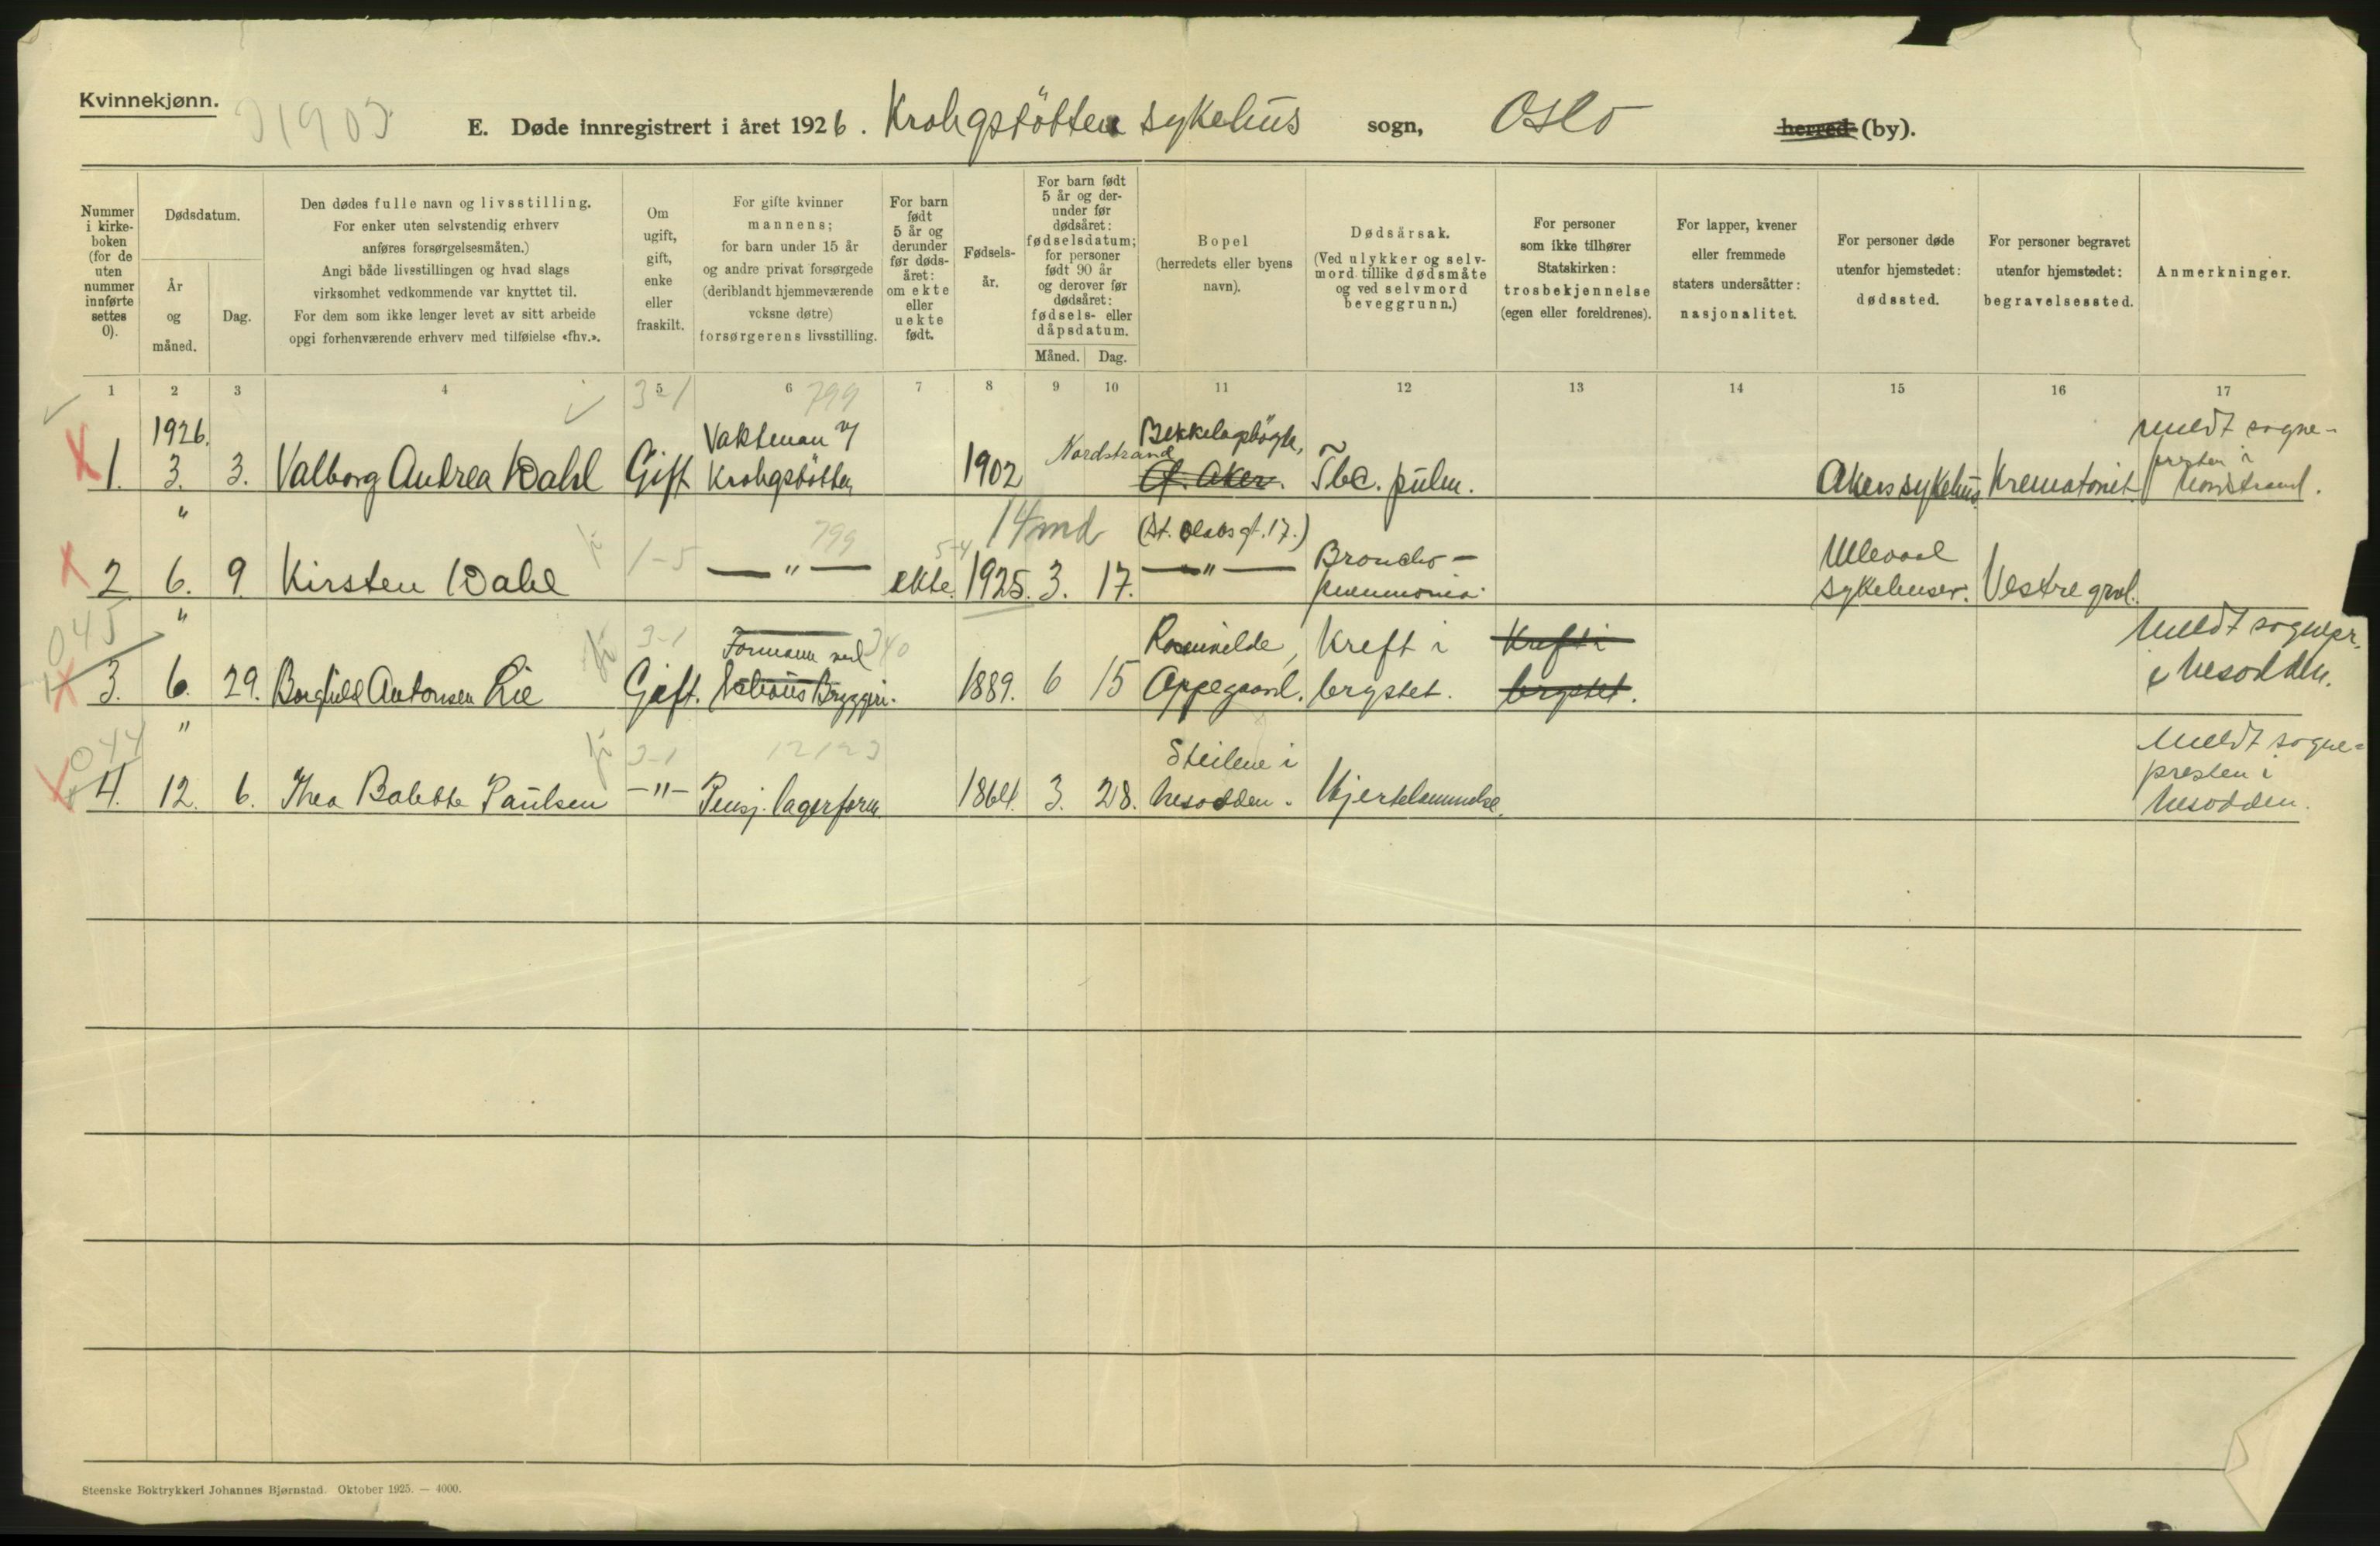 Kvinnekjønn.
E. Døde innregistrert i året 1926. Krohgstötten sykehus sogn, Oslo herred (by).
Nummer i kirke-boken (for de uten nummer innførte settes 0).
Dødsdatum.
År og måned.
Dag.
Den dødes fulle navn og livsstilling.
For enker uten selvstendig erhverv
anføres forsørgelsesmåten.)
Angi både livsstillingen og hvad slags
virksomhet vedkommende var knyttet til.
For dem som ikke lenger levet av sitt arbeide
opgi forhenværende erhverv med tilføielse «fhv.».
Om ugift, gift, enke eller fraskilt.
For gifte kvinner
mannens;
for barn under 15 år
og andre privat forsørgede
(deriblandt hjemmeværende
voksne døtre)
forsørgerens livsstilling.
For barn født 5 år og derunder før døds-året: om ekte eller uekte født.
Fødsels-år.
For barn født 5 år og der-under før dødsåret: fødselsdatum; for personer født 90 år og derover før dødsåret: fødsels- eller dåpsdatum.
Måned. Dag.
Bopel
(herredets eller byens
navn).
Dødsårsak.
(Ved ulykker og selv-
mord tillike dødsmåte
og ved selvmord
beveggrunn.)
For personer
som ikke tilhører
Statskirken:
trosbekjennelse
(egen eller foreldrenes).
For lapper, kvener
eller fremmede
staters undersåtter:
nasjonalitet.
For personer døde
utenfor hjemstedet:
dødssted.
For personer begravet
utenfor hjemstedet:
begravelsessted.
Anmerkninger.
1 2 3 4 5 6 7 8 9 10 11 12 13 14 15 16 17
3-1 799
1926.
1. 3. 3. Valborg Andrea Dahl Gift Vaktman v/ Krohgstötten 1902 Nordstrand Bekkelagshögda, Aker. Tbc. pulm. Akers sykehus Krematoriet meldt sogne-presten i Nordstrand.
" 1-5 799 5-4 14 md (St. Olavs gt. 17.)
2 6. 9. Kirsten Dahl — " — ekte. 1925. 3. 17. — " — Broncho-pneumonia. Ullevaal sykehuser. Vestre gravl.
045 " 3-1 340
3. 6. 29. Borghild Antonsen Lie Gift. Formann ved Bryggeri. 1889. 6 15 Rosenvilde, Oppegaard. Kreft i brystet. Kreft i brystet. Meldt sognepr. i Nesodden.
044 " 3-1 12123
4. 12. 6. Thea Bolette Paulsen — " — Pensj. lagerform. 1864. 3. 28. Steilene i Nesodden. Hjertelammelse. Meldt sogne-presten i Nesodden.
Steenske Boktrykkeri Johannes Bjørnstad. Oktober 1925. — 4000.